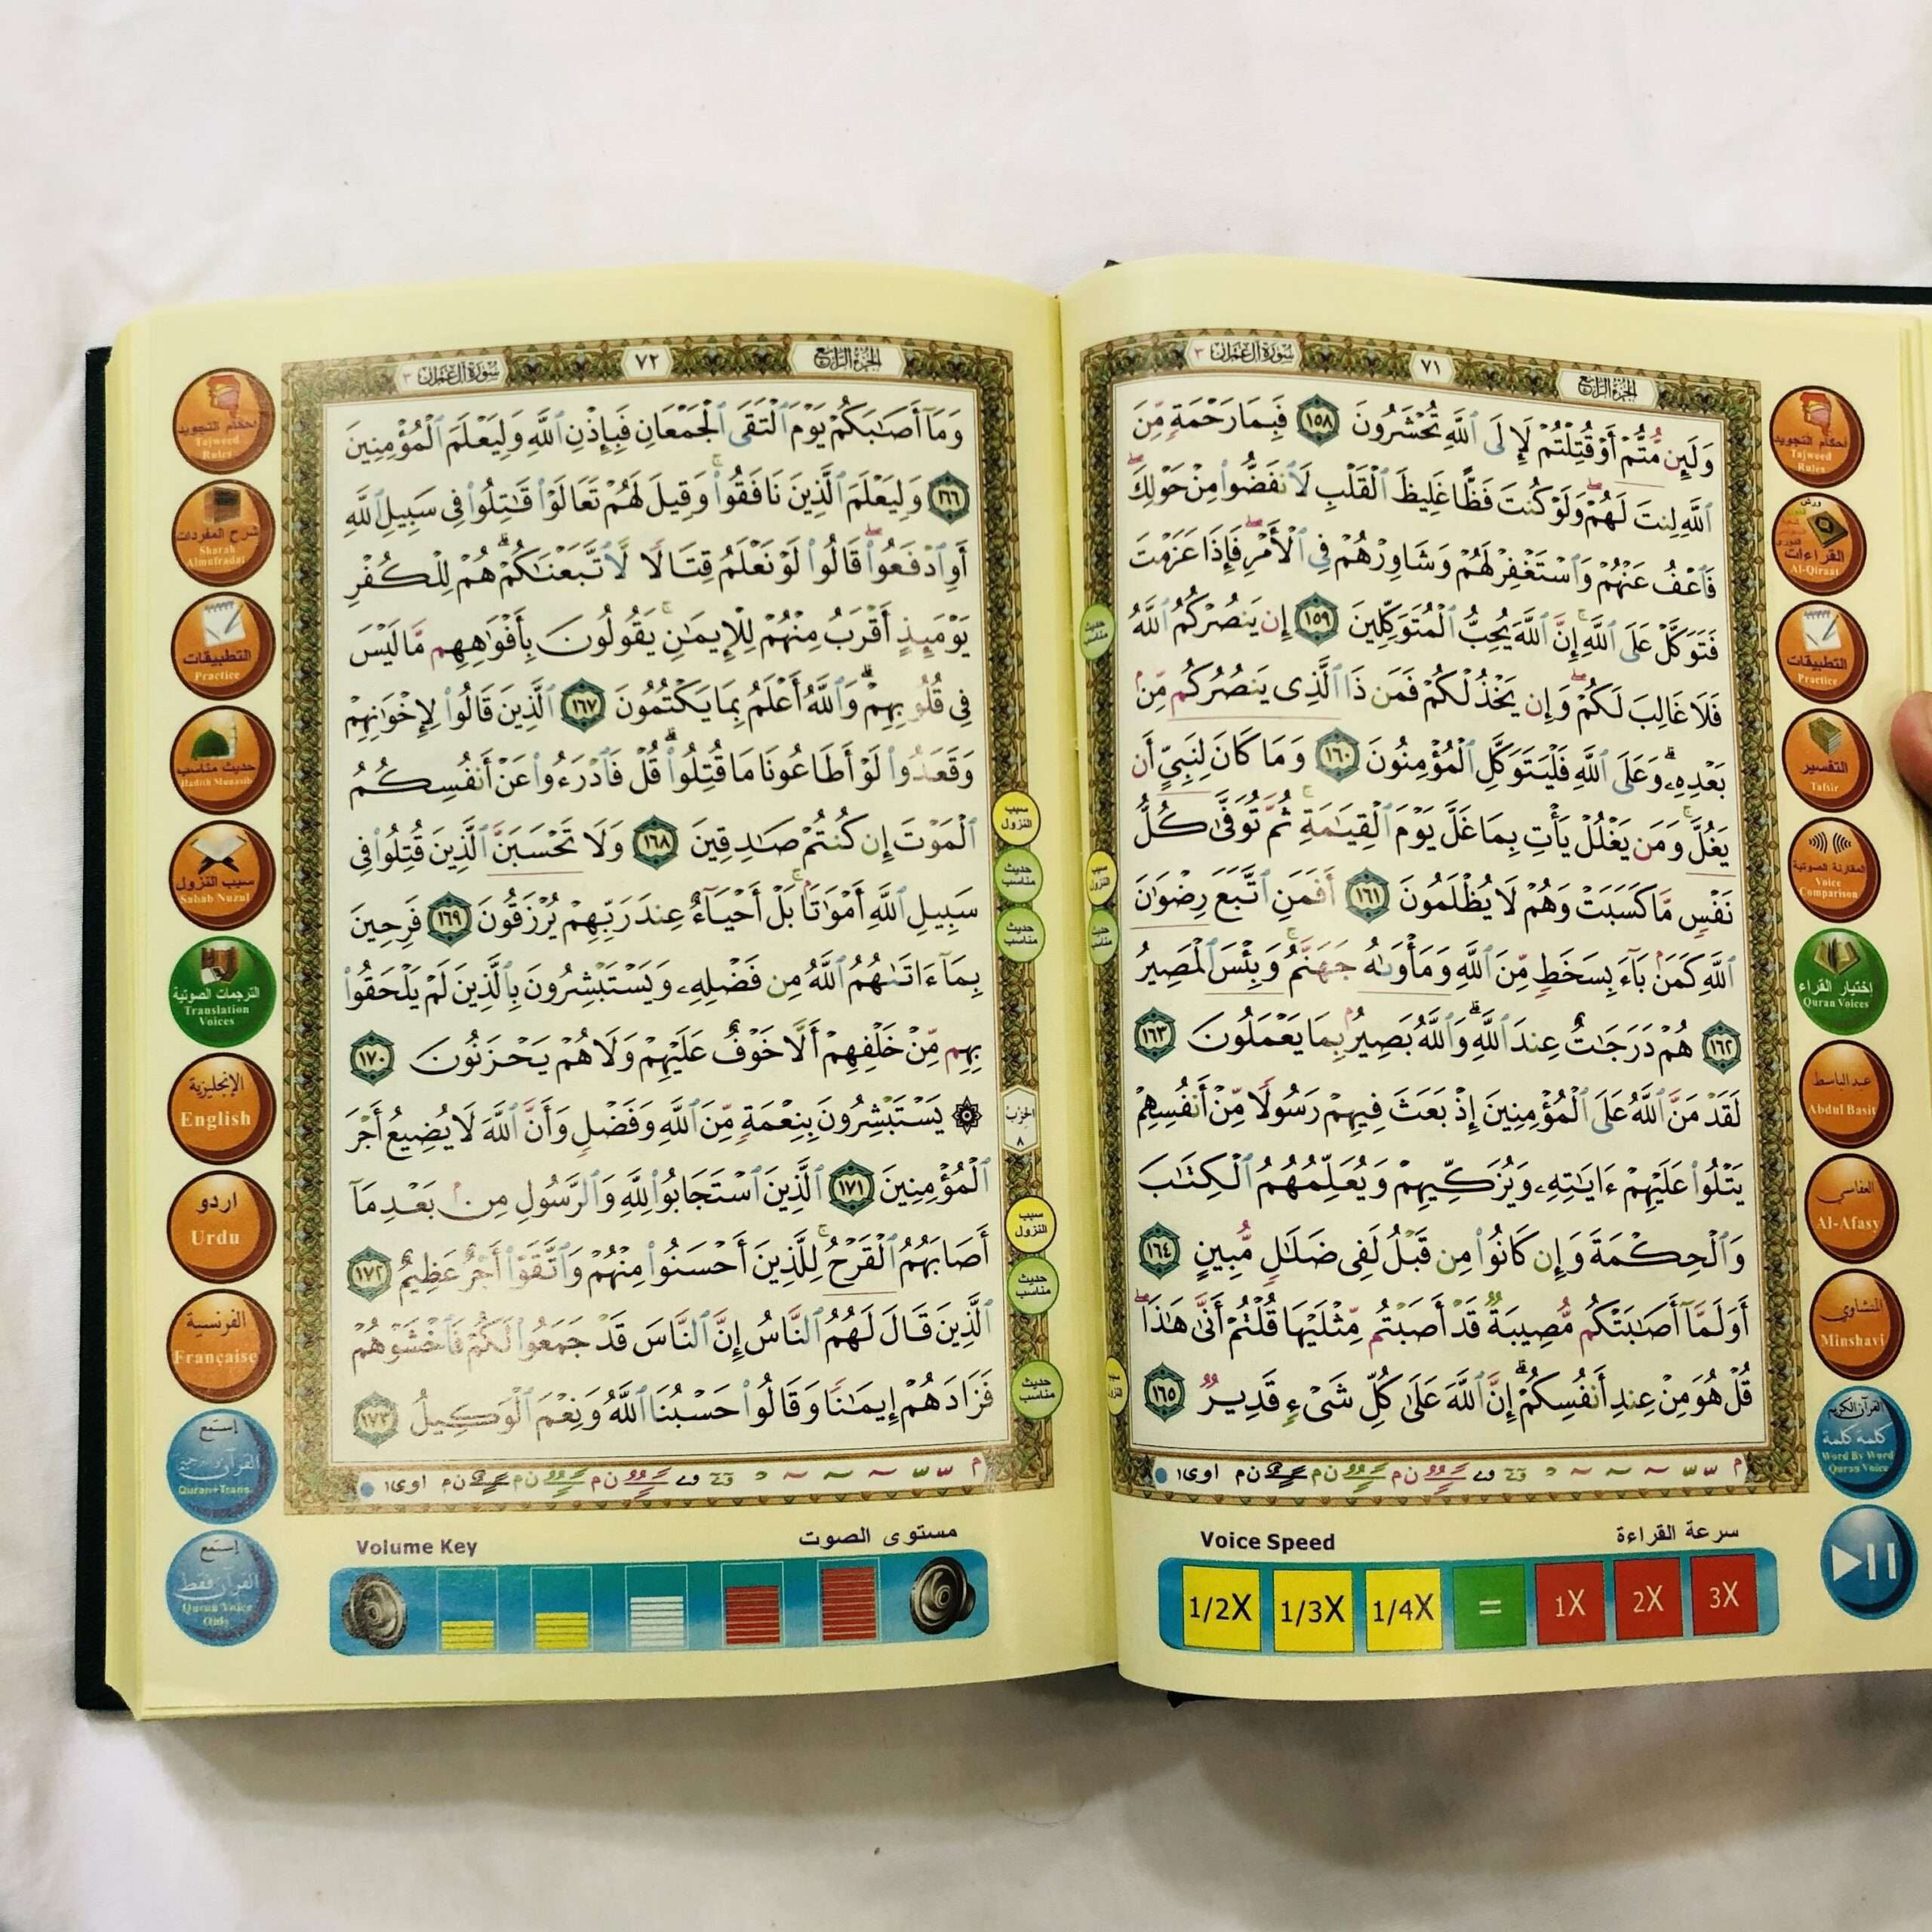 سُورَةُ آلِ عِمْرَان ٣
٧١
الجُزْءُ الرَّابِعُ
وَلَئِن مُّتُّمْ أَوْ قُتِلْتُمْ لَإِلَى ٱللَّهِ تُحْشَرُونَ ١٥٨ فَبِمَا رَحْمَةٍ مِّنَ
ٱللَّهِ لِنتَ لَهُمْ وَلَوْ كُنتَ فَظًّا غَلِيظَ ٱلْقَلْبِ لَٱنفَضُّوا۟ مِنْ حَوْلِكَ
فَٱعْفُ عَنْهُمْ وَٱسْتَغْفِرْ لَهُمْ وَشَاوِرْهُمْ فِى ٱلْأَمْرِ فَإِذَا عَزَمْتَ
فَتَوَكَّلْ عَلَى ٱللَّهِ إِنَّ ٱللَّهَ يُحِبُّ ٱلْمُتَوَكِّلِينَ ١٥٩ إِن يَنصُرْكُمُ ٱللَّهُ
فَلَا غَالِبَ لَكُمْ وَإِن يَخْذُلْكُمْ فَمَن ذَا ٱلَّذِى يَنصُرُكُم مِّنۢ
بَعْدِهِۦ وَعَلَى ٱللَّهِ فَلْيَتَوَكَّلِ ٱلْمُؤْمِنُونَ ١٦٠ وَمَا كَانَ لِنَبِىٍّ أَن
يَغُلَّ وَمَن يَغْلُلْ يَأْتِ بِمَا غَلَّ يَوْمَ ٱلْقِيَـٰمَةِ ثُمَّ تُوَفَّىٰ كُلُّ
نَفْسٍ مَّا كَسَبَتْ وَهُمْ لَا يُظْلَمُونَ ١٦١ أَفَمَنِ ٱتَّبَعَ رِضْوَٰنَ
ٱللَّهِ كَمَنۢ بَآءَ بِسَخَطٍ مِّنَ ٱللَّهِ وَمَأْوَىٰهُ جَهَنَّمُ وَبِئْسَ ٱلْمَصِيرُ
١٦٢ هُمْ دَرَجَـٰتٌ عِندَ ٱللَّهِ وَٱللَّهُ بَصِيرٌۢ بِمَا يَعْمَلُونَ ١٦٣
لَقَدْ مَنَّ ٱللَّهُ عَلَى ٱلْمُؤْمِنِينَ إِذْ بَعَثَ فِيهِمْ رَسُولًا مِّنْ أَنفُسِهِمْ
يَتْلُوا۟ عَلَيْهِمْ ءَايَـٰتِهِۦ وَيُزَكِّيهِمْ وَيُعَلِّمُهُمُ ٱلْكِتَـٰبَ
وَٱلْحِكْمَةَ وَإِن كَانُوا۟ مِن قَبْلُ لَفِى ضَلَـٰلٍ مُّبِينٍ ١٦٤
أَوَلَمَّآ أَصَـٰبَتْكُم مُّصِيبَةٌ قَدْ أَصَبْتُم مِّثْلَيْهَا قُلْتُمْ أَنَّىٰ هَـٰذَا
قُلْ هُوَ مِنْ عِندِ أَنفُسِكُمْ إِنَّ ٱللَّهَ عَلَىٰ كُلِّ شَىْءٍ قَدِيرٌ ١٦٥
حديث مناسب
أحكام التجويد
Tajweed Rules
ورش
القراءات
Al-Qiraat
التطبيقات
Practice
التفسير
Tafsir
المقارنة الصوتية
Voice Comparison
إختيار القراء
Quran Voices
عبد الباسط
Abdul Basit
العفاسي
Al-Afasy
المنشاوي
Minshavi
القرآن الكريم
كلمة كلمة
Word By Word
Quran Voice
Voice Speed
سرعة القراءة
1/2X 1/3X 1/4X = 1X 2X 3X
سُورَةُ آلِ عِمْرَان ٣
٧٢
الجُزْءُ الرَّابِعُ
وَمَآ أَصَـٰبَكُمْ يَوْمَ ٱلْتَقَى ٱلْجَمْعَانِ فَبِإِذْنِ ٱللَّهِ وَلِيَعْلَمَ ٱلْمُؤْمِنِينَ
١٦٦ وَلِيَعْلَمَ ٱلَّذِينَ نَافَقُوا۟ وَقِيلَ لَهُمْ تَعَالَوْا۟ قَـٰتِلُوا۟ فِى سَبِيلِ ٱللَّهِ
أَوِ ٱدْفَعُوا۟ قَالُوا۟ لَوْ نَعْلَمُ قِتَالًا لَّٱتَّبَعْنَـٰكُمْ هُمْ لِلْكُفْرِ
يَوْمَئِذٍ أَقْرَبُ مِنْهُمْ لِلْإِيمَـٰنِ يَقُولُونَ بِأَفْوَٰهِهِم مَّا لَيْسَ
فِى قُلُوبِهِمْ وَٱللَّهُ أَعْلَمُ بِمَا يَكْتُمُونَ ١٦٧ ٱلَّذِينَ قَالُوا۟ لِإِخْوَٰنِهِمْ
وَقَعَدُوا۟ لَوْ أَطَاعُونَا مَا قُتِلُوا۟ قُلْ فَٱدْرَءُوا۟ عَنْ أَنفُسِكُمُ
ٱلْمَوْتَ إِن كُنتُمْ صَـٰدِقِينَ ١٦٨ وَلَا تَحْسَبَنَّ ٱلَّذِينَ قُتِلُوا۟ فِى
سَبِيلِ ٱللَّهِ أَمْوَٰتًۢا بَلْ أَحْيَآءٌ عِندَ رَبِّهِمْ يُرْزَقُونَ ١٦٩ فَرِحِينَ
بِمَآ ءَاتَىٰهُمُ ٱللَّهُ مِن فَضْلِهِۦ وَيَسْتَبْشِرُونَ بِٱلَّذِينَ لَمْ يَلْحَقُوا۟
بِهِم مِّنْ خَلْفِهِمْ أَلَّا خَوْفٌ عَلَيْهِمْ وَلَا هُمْ يَحْزَنُونَ ١٧٠
۞ يَسْتَبْشِرُونَ بِنِعْمَةٍ مِّنَ ٱللَّهِ وَفَضْلٍ وَأَنَّ ٱللَّهَ لَا يُضِيعُ أَجْرَ
ٱلْمُؤْمِنِينَ ١٧١ ٱلَّذِينَ ٱسْتَجَابُوا۟ لِلَّهِ وَٱلرَّسُولِ مِنۢ بَعْدِ مَآ
أَصَابَهُمُ ٱلْقَرْحُ لِلَّذِينَ أَحْسَنُوا۟ مِنْهُمْ وَٱتَّقَوْا۟ أَجْرٌ عَظِيمٌ ١٧٢
ٱلَّذِينَ قَالَ لَهُمُ ٱلنَّاسُ إِنَّ ٱلنَّاسَ قَدْ جَمَعُوا۟ لَكُمْ فَٱخْشَوْهُمْ
فَزَادَهُمْ إِيمَـٰنًا وَقَالُوا۟ حَسْبُنَا ٱللَّهُ وَنِعْمَ ٱلْوَكِيلُ ١٧٣
سبب النزول
حديث مناسب
حديث مناسب
الحزب ٨
سبب النزول
حديث مناسب
حديث مناسب
أحكام التجويد
Tajweed Rules
شرح المفردات
Sharah Almufradat
التطبيقات
Practice
حديث مناسب
Hadith Munasib
سبب النزول
Sabab Nuzul
الترجمات الصوتية
Translation Voices
الإنجليزية
English
اردو
Urdu
الفرنسية
Française
إستمع
Quran+Trans.
إستمع
القرآن فقط
Quran Voice Only
Volume Key
مستوى الصوت